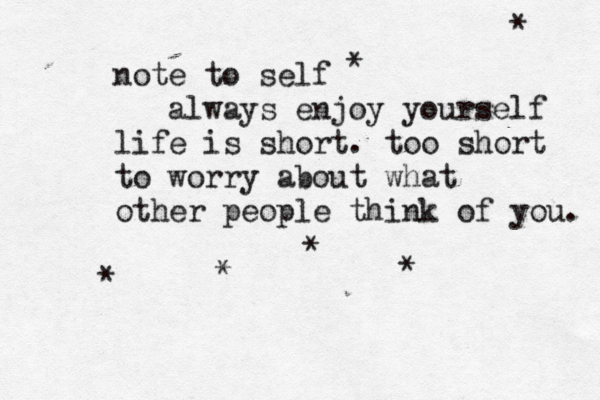 *
note to self *
always enjoy yourself
life is short. too short
to worry about what
other people think of you.
*
* * *